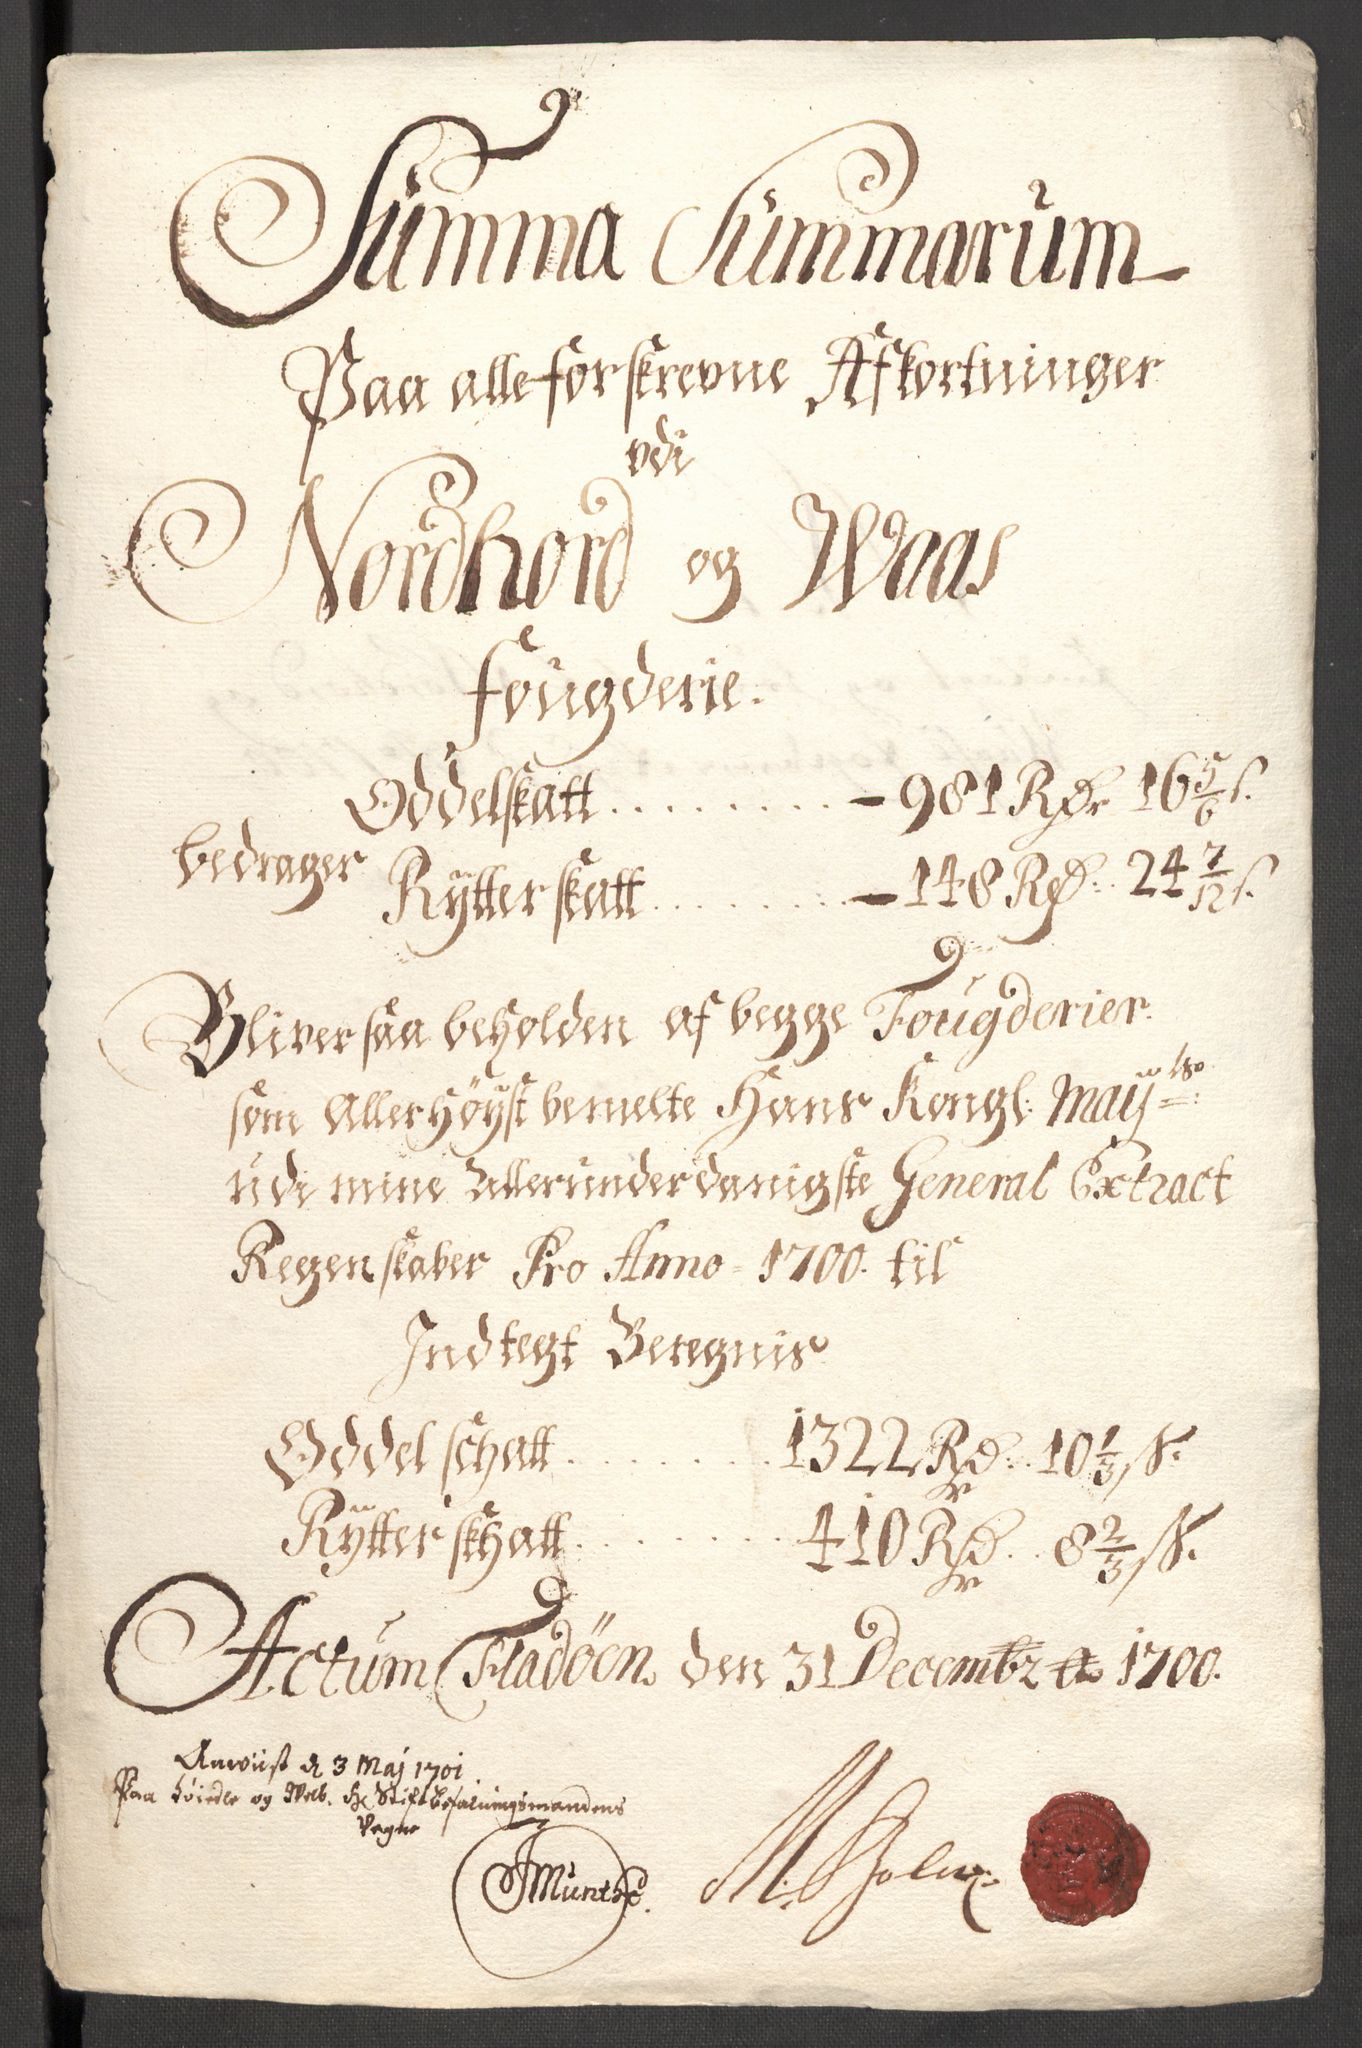 Summa Summarum
Paa alle forskrevne Afkortninger
vdi
Nordhord og Waas
fougderie.
Oddelskatt ........ - 981 Rdr 16 5/6 s.
bedrager
Rÿtterskatt ........ - 148 Rd: 24 7/12 s.
Bliver saa beholden af begge Fougderier.
som Allerhöÿst bemelte Hans Kongl: Maÿ
udi mine Allerunderdanigste General Extract
Regenskaber Pro Anno 1700. til
Indtegt Beregnis
Oddel schatt ........ 1322 Rd. 10 1/3 s.
Rÿtter skhatt ........ 410 Rd. 8 2/3 s.
Actum Fladöen den 31 Decembr A 1700.
Anviist d 3 Maj 1701
Paa höiedle og Welb. Hr Stiftbefalningsmandens
Vegne
Munthe.